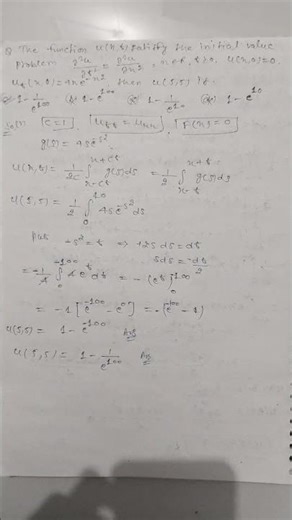 Q The function u(x,t) satisfy the initial value
problem ∂²u/∂t² = ∂²u/∂x², x∈R, t>0, u(x,0)=0,
u_t(x,0)=4xe^{-x²} then u(5,5) is
1-1/e^{100} 1-e^{100} 1-1/e^{10} 1-e^{10}
Sol^n) [C=1], [u_tt = u_xx], [f(x)=0]
g(s) = 4se^{-s²}
u(x,t) = 1/2c ∫_{x-ct}^{x+ct} g(s)ds = 1/2 ∫_{x-t}^{x+t} g(s)ds
u(5,5) = 1/2 ∫_0^{10} 4se^{-s²}ds
put -s²=t ⇒ -2sds=dt
sds=-dt/2
= -1/4 ∫_0^{-100} 4e^t dt = -(e^t)_0^{-100}
= -1[e^{-100}-e^0] = -(e^{-100}-1)
u(5,5) = 1-e^{-100} Ans
u(5,5) = 1-1/e^{100} Ans